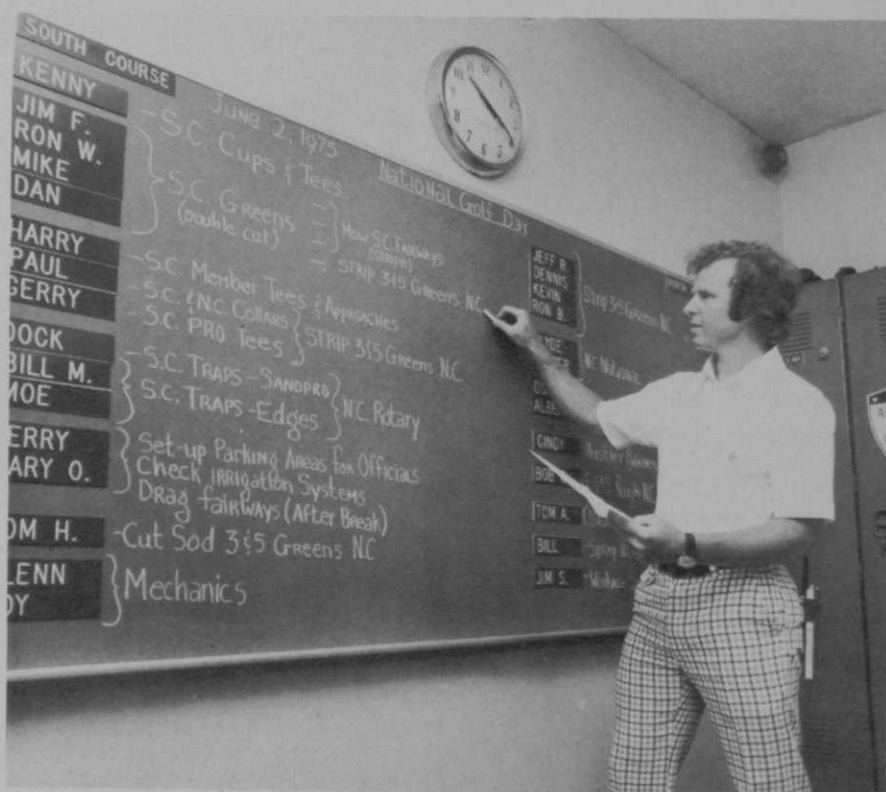 SOUTH COURSE
June 2, 1975
National Golf Day
KENNY
JIM F.
RON W.
MIKE
DAN
HARRY
PAUL
GERRY
DOCK
BILL M.
MOE
ERRY
ARY O.
OM H.
LENN
DY
-S.C. Cups & Tees
S.C. Greens
(Double cut)
Mow S.C. Fairways
(STRIPE)
STRIP 3&5 Greens N.C.
-S.C. Member Tees & Approaches
-S.C. & N.C. Collars
-S.C. PRO Tees
STRIP 3&5 Greens N.C.
-S.C. TRAPS-SANDPRO
S.C. TRAPS-Edges
N.C. Rotary
Set-up Parking Areas for Officials
Check irrigation Systems
Drag fairways (After Break)
-Cut Sod 3&5 Greens N.C
Mechanics
JEFF R.
DENNIS
KEVIN
RON B.
Strip 3&5 Greens N.C.
N.C. National
CINDY
BOB
TOM A.
BILL
JIM S.
11
12
1
2
3
4
5
6
7
8
9
10